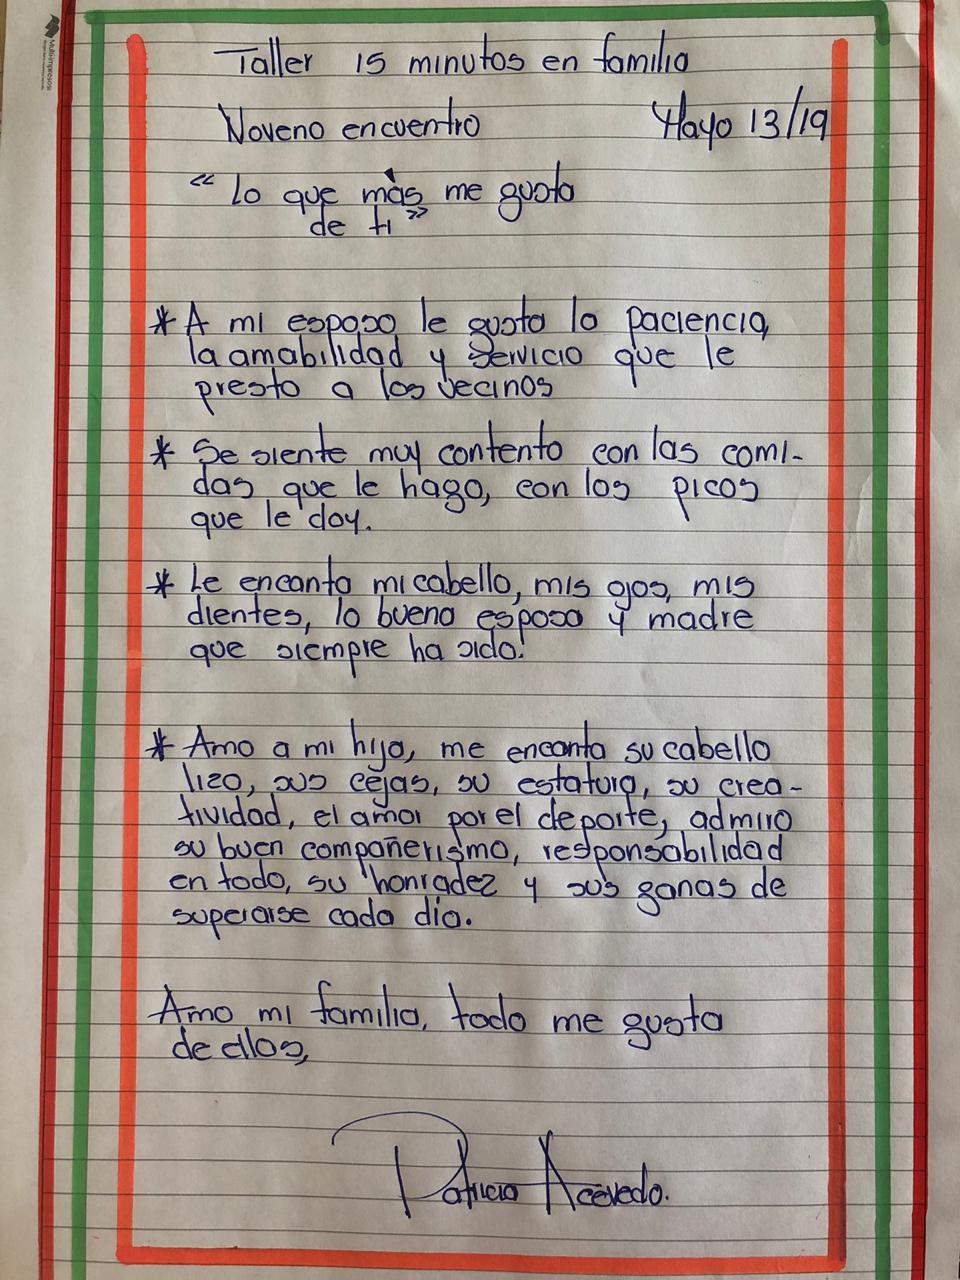 Multiimpresos
Taller 15 minutos en familia
Noveno encuentro Mayo 13/19
"Lo que más me gusta
de ti"
* A mi esposo le gusta la paciencia,
la amabilidad y servicio que le
presto a los vecinos
* Se siente muy contento con las comi-
das que le hago, con los picos
que le doy.
* Le encanta mi cabello, mis ojos, mis
dientes, lo buena esposa y madre
que siempre ha sido.
* Amo a mi hija, me encanta su cabello
lizo, sus cejas, su estatura, su crea-
tividad, el amor por el deporte, admiro
su buen compañerismo, responsabilidad
en todo, su honradez y sus ganas de
superarse cada día.
Amo mi familia, todo me gusta
de ellos,
Patricia Acevedo.